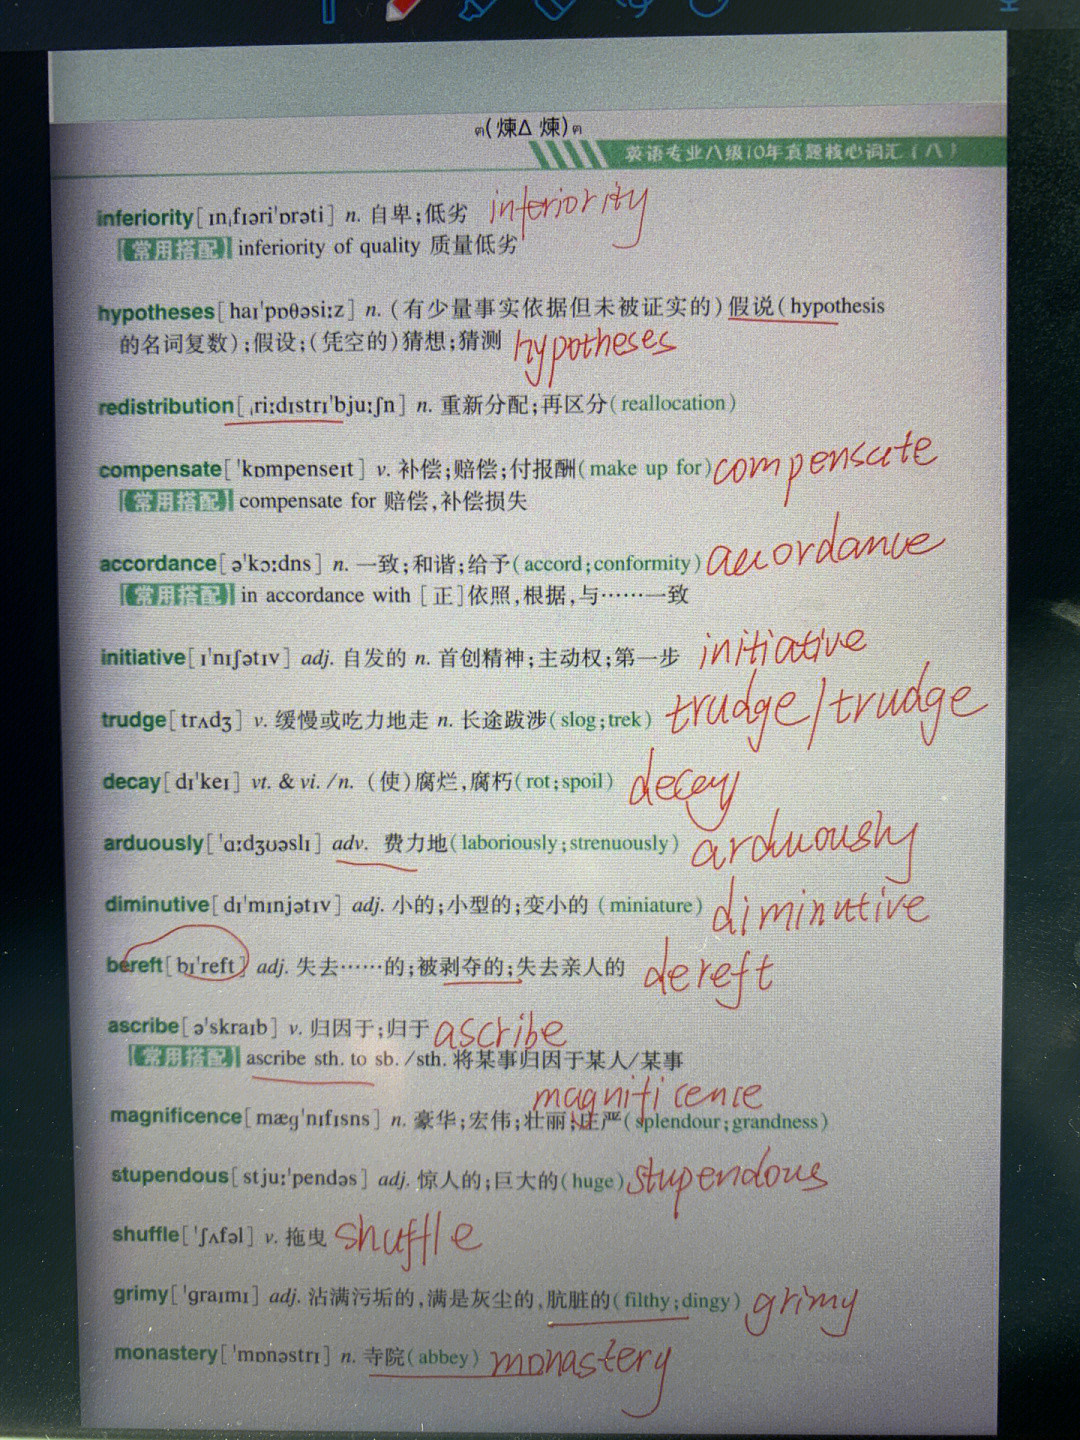 ฅ(煉Δ 煉)ฅ
英语专业八级10年真题核心词汇(八)
inferiority[ɪnˌfɪəri'ɒrəti] n. 自卑;低劣 inferiority
【常用搭配】inferiority of quality 质量低劣
hypotheses[haɪ'pɒθəsi:z] n. (有少量事实依据但未被证实的)假说(hypothesis
的名词复数);假设;(凭空的)猜想;猜测 hypotheses
redistribution[ˌri:dɪstrɪ'bju:ʃn] n. 重新分配;再区分(reallocation)
compensate['kɒmpenseɪt] v. 补偿;赔偿;付报酬(make up for) compensate
【常用搭配】compensate for 赔偿,补偿损失
accordance[ə'kɔ:dns] n. 一致;和谐;给予(accord;conformity) accordance
【常用搭配】in accordance with [正]依照,根据,与……一致
initiative[ɪ'nɪʃətɪv] adj. 自发的 n. 首创精神;主动权;第一步 initiative
trudge[trʌdʒ] v. 缓慢或吃力地走 n. 长途跋涉(slog;trek) trudge/trudge
decay[dɪ'keɪ] vt. & vi. /n. (使)腐烂,腐朽(rot;spoil) decay
arduously['ɑ:dʒʊəslɪ] adv. 费力地(laboriously;strenuously) arduously
diminutive[dɪ'mɪnjətɪv] adj. 小的;小型的;变小的 (miniature) diminutive
bereft[bɪ'reft] adj. 失去……的;被剥夺的;失去亲人的 dereft
ascribe[ə'skraɪb] v. 归因于;归于 ascribe
【常用搭配】ascribe sth. to sb. /sth. 将某事归因于某人/某事
magnificence
magnificence[mæg'nɪfɪsns] n. 豪华;宏伟;壮丽;庄严(splendour;grandness)
stupendous[stju:'pendəs] adj. 惊人的;巨大的(huge) stupendous
shuffle['ʃʌfəl] v. 拖曳 shuffle
grimy['graɪmɪ] adj. 沾满污垢的,满是灰尘的,肮脏的(filthy;dingy) grimy
monastery['mɒnəstrɪ] n. 寺院(abbey) monastery